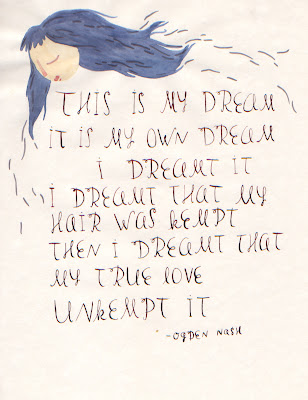 THIS IS MY DREAM
IT IS MY OWN DREAM
I DREAMT IT
I DREAMT THAT MY
HAIR WAS KEMPT
THEN I DREAMT THAT
MY TRUE LOVE
UNKEMPT IT
-OGDEN NASH